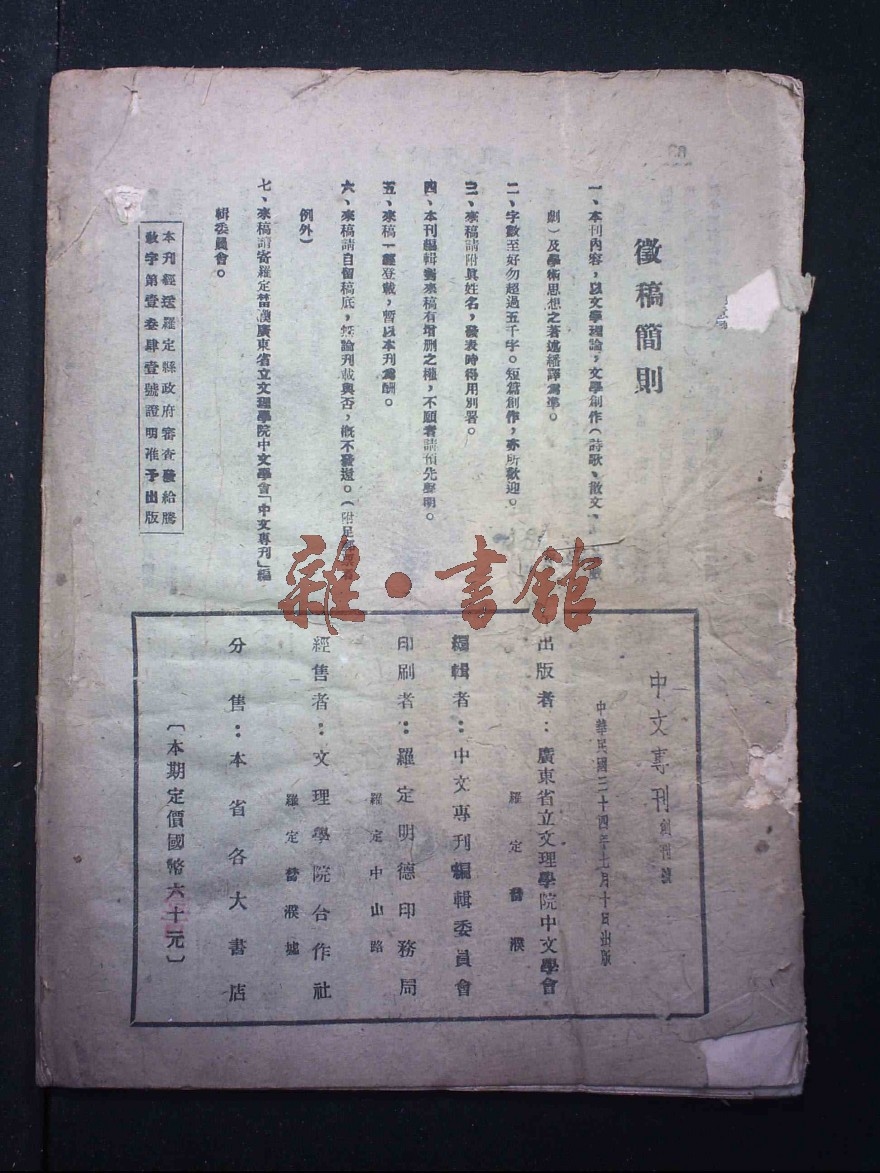 徵稿簡則
一、本刊內容，以文學理論，文學創作（詩歌、散文、
劇）及學術思想之著述繙譯爲準。
二、字數至好勿超過五千字。短篇創作，亦所歡迎。
三、來稿請附眞姓名，發表時得用別署。
四、本刊編輯對來稿有增删之權，不願者請預先聲明。
五、來稿一經登載，暫以本刊爲酬。
六、來稿請自留稿底，無論刊載與否，概不發還。（附足
例外）
七、來稿請寄羅定䓣濮廣東省立文理學院中文學會「中文專刊」編
輯委員會。
本刊經送羅定縣政府審查發給騰
教字第壹叁肆壹號證明准予出版
中文專刊 創刊號
中華民國三十四年七月十日出版
出版者：廣東省立文理學院中文學會
羅定䓣濮
編輯者：中文專刊編輯委員會
印刷者：羅定明德印務局
羅定中山路
經售者：文理學院合作社
羅定䓣濮墟
分售：本省各大書店
〔本期定價國幣六十元〕
雜·書館